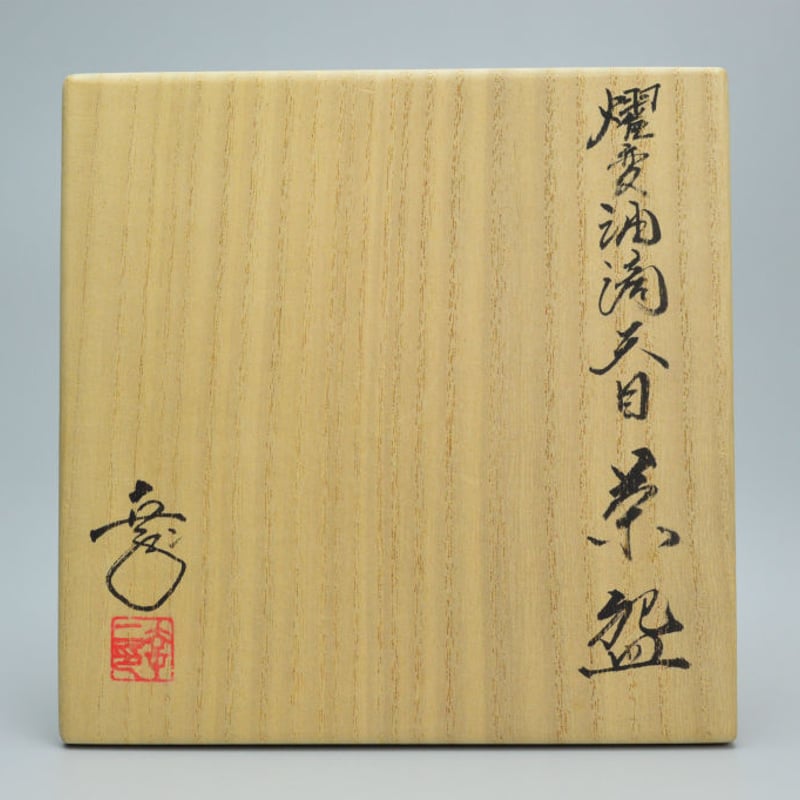 燿変油滴天目茶盌